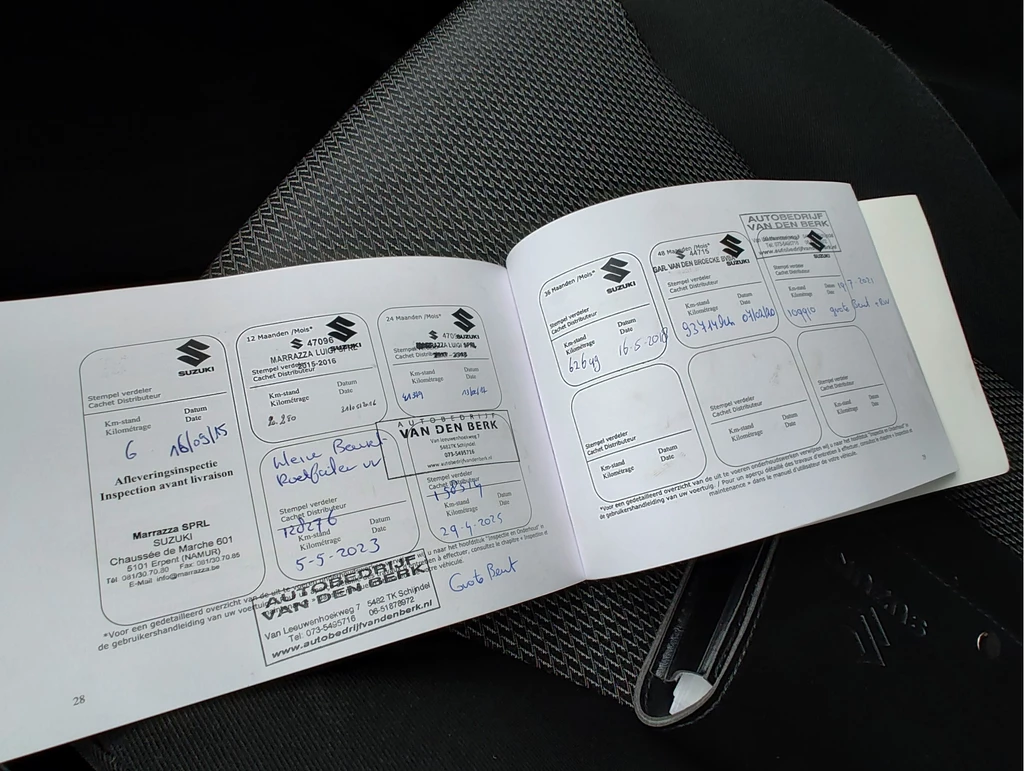 SUZUKI
Stempel verdeler
Cachet Distributeur
Km-stand Datum
Kilométrage Date
6 16/03/15
Afleveringsinspectie
Inspection avant livraison
Marrazza SPRL
SUZUKI
Chaussée de Marche 601
5101 Erpent (NAMUR)
Tél 081/30.70.80 Fax 081/30.70.85
E-Mail info@marrazza.be
12 Maanden /Mois*
47096
MARRAZZA LUIGI SPRL
SUZUKI
2015-2016
Stempel verdeler
Cachet Distributeur
Km-stand Datum
Kilométrage Date
24 Maanden /Mois*
SUZUKI
Cachet Distributeur
Km-stand Datum
Kilométrage Date
Kleine Beurt
Stempel verdeler
Cachet Distributeur
128276
Km-stand Datum
Kilométrage Date
5-5-2023
AUTOBEDRIJF
VAN DEN BERK
Van Leeuwenhoekweg 7
5482TK Schijndel
073-5495716
www.autobedrijfvandenberk.nl
Stempel verdeler
Cachet Distributeur
Km-stand Datum
Kilométrage Date
29-4-2025
Grote Beurt
*Voor een gedetailleerd overzicht van de uit te
de gebruikershandleiding van uw
AUTOBEDRIJF
VAN DEN BERK
Van Leeuwenhoekweg 7 5482 TK Schijndel
Tel: 073-5495716 06-51878972
www.autobedrijfvandenberk.nl
28
36 Maanden /Mois*
SUZUKI
Stempel verdeler
Cachet Distributeur
Km-stand Datum
Kilométrage Date
16-5-2018
48 Maanden /Mois*
44715
GAR. VAN DEN BROECKE BVBA
SUZUKI
Stempel verdeler
Cachet Distributeur
Km-stand Datum
Kilométrage Date
AUTOBEDRIJF
VAN DEN BERK
SUZUKI
Stempel verdeler
Cachet Distributeur
Km-stand Datum
Kilométrage Date
grote Beurt
Stempel verdeler
Cachet Distributeur
Km-stand Datum
Kilométrage Date
Stempel verdeler
Cachet Distributeur
Km-stand Datum
Kilométrage Date
Stempel verdeler
Cachet Distributeur
Km-stand Datum
Kilométrage Date
*Voor een gedetailleerd overzicht van de uit te voeren onderhoudswerken verwijzen wij u naar het hoofdstuk "Inspectie en Onderhoud" in
de gebruikershandleiding van uw voertuig. / Pour un aperçu détaillé des travaux d'entretien à effectuer, consultez le chapitre « Inspection et
maintenance » dans le manuel d'utilisateur de votre véhicule.
SUZUKI